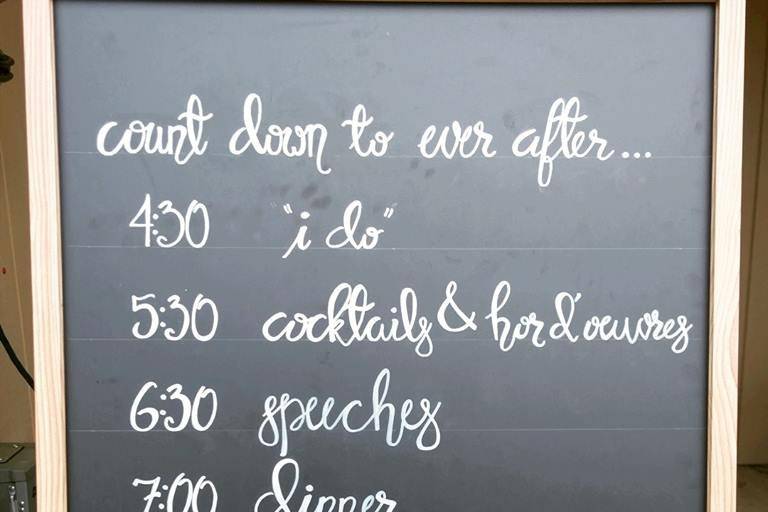 count down to ever after...
4:30 "i do"
5:30 cocktails & hor d'oeuvres
6:30 speeches
7:00 dinner